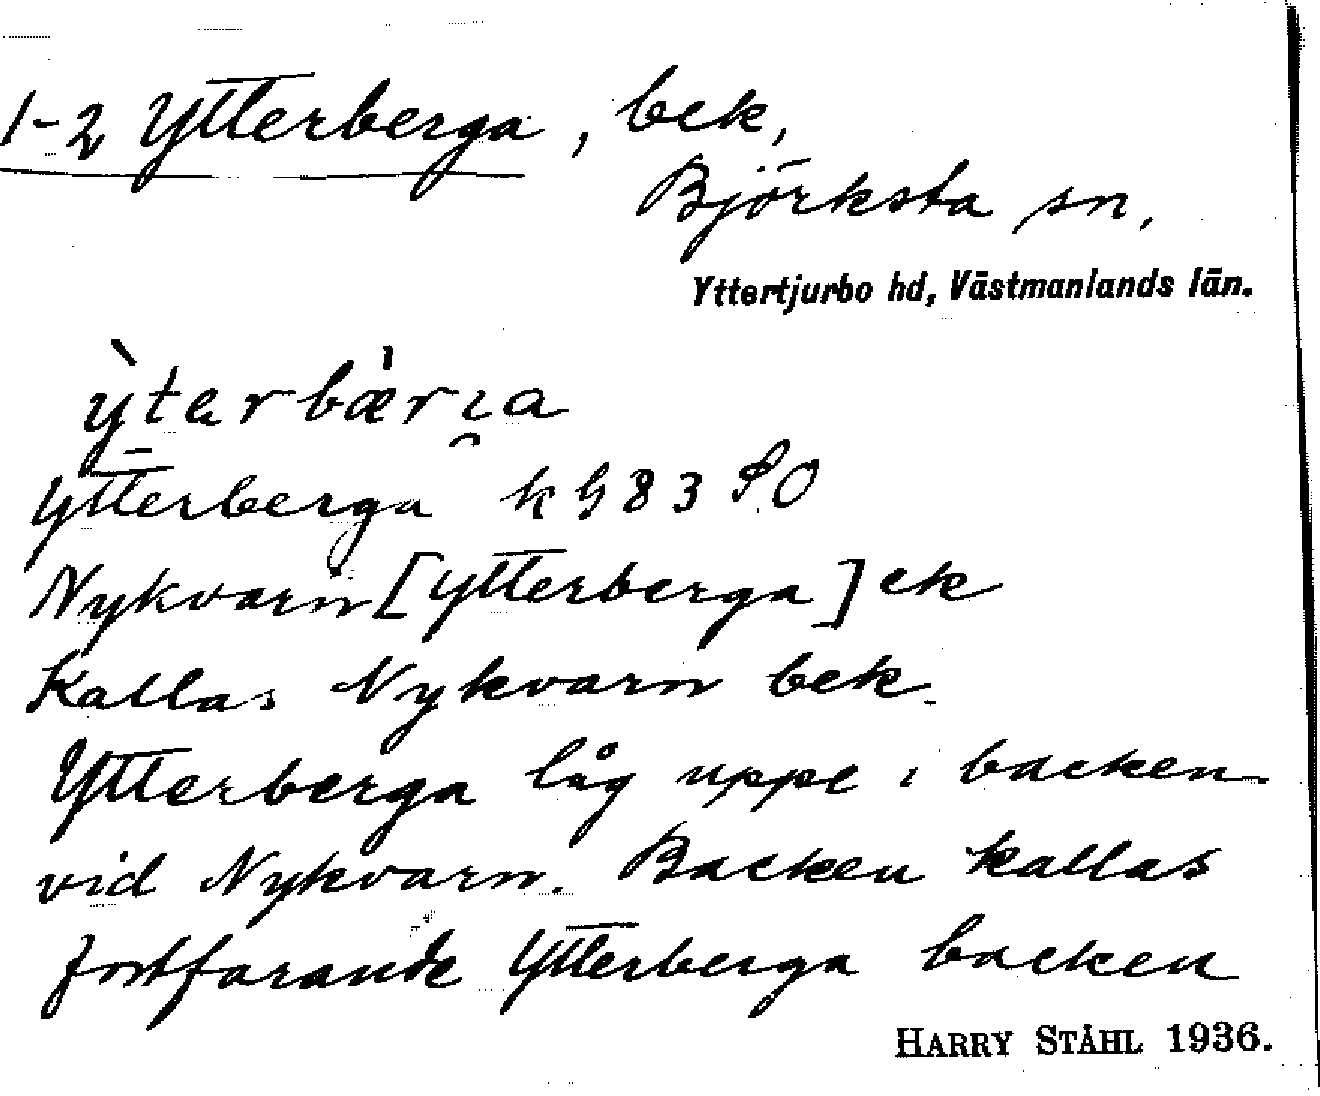 1-2 Ytterberga, bek,
Björksta sn,
Yttertjurbo hd, Västmanlands län.
ỳtərbæ̀rɪ̯a
Ytterberga k G 83 SO
Nykvarn [Ytterberga] ek
Kallas Nykvarn bek.
Ytterberga låg uppe i backen
vid Nykvarn. Backen kallas
fortfarande Ytterberga backen
HARRY STÅHL 1936.